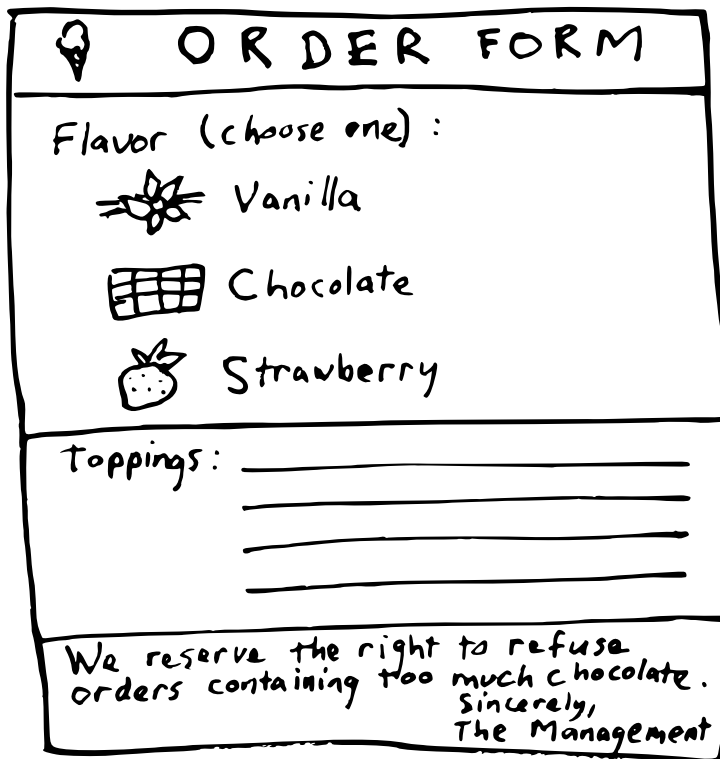 ORDER FORM
Flavor (choose one) :
Vanilla
Chocolate
Strawberry
Toppings:
We reserve the right to refuse
orders containing too much chocolate.
Sincerely,
The Management